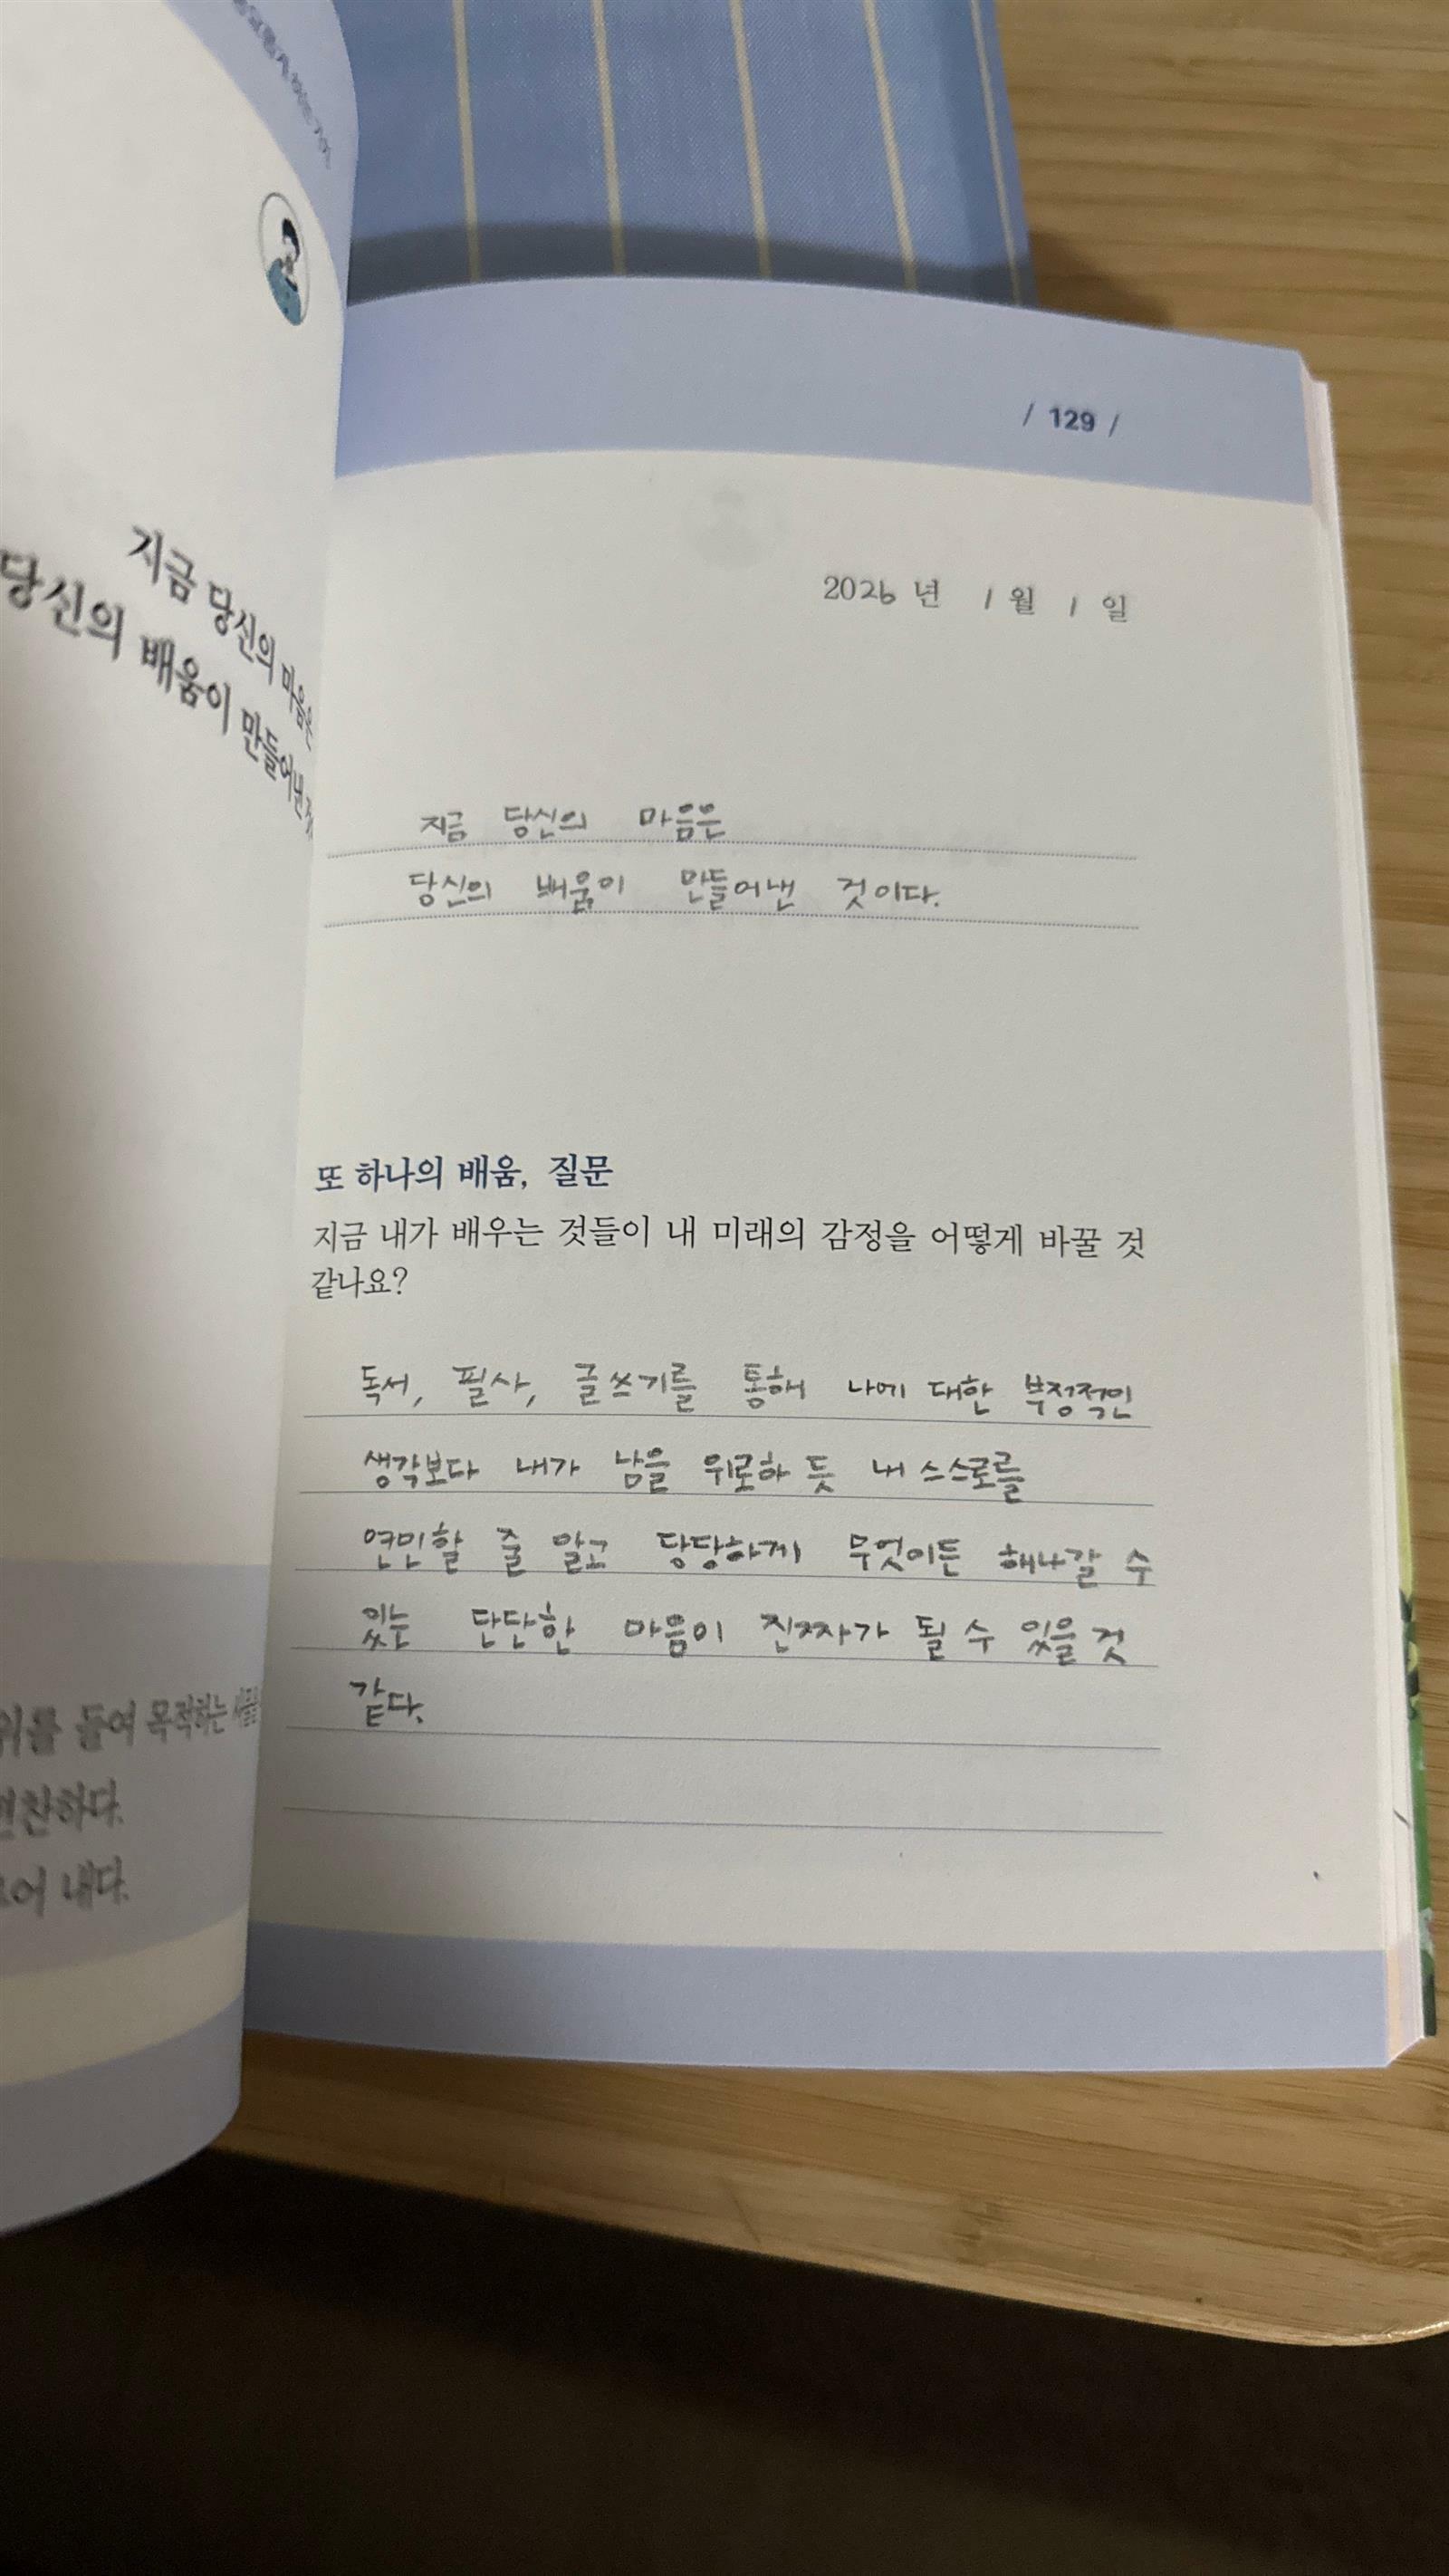 지금 당신의 마음은
당신의 배움이 만들어낸
위를 들여 목적하는
편찬하다.
어 내다.
/ 129 /
2026 년 1 월 1 일
지금 당신의 마음은
당신의 배움이 만들어낸 것이다.
또 하나의 배움, 질문
지금 내가 배우는 것들이 내 미래의 감정을 어떻게 바꿀 것
같나요?
독서, 필사, 글쓰기를 통해 나에 대한 부정적인
생각보다 내가 남을 위로하 듯 내 스스로를
연민할 줄 알고 당당하게 무엇이든 해나갈 수
있는 단단한 마음이 진짜가 될 수 있을 것
같다.